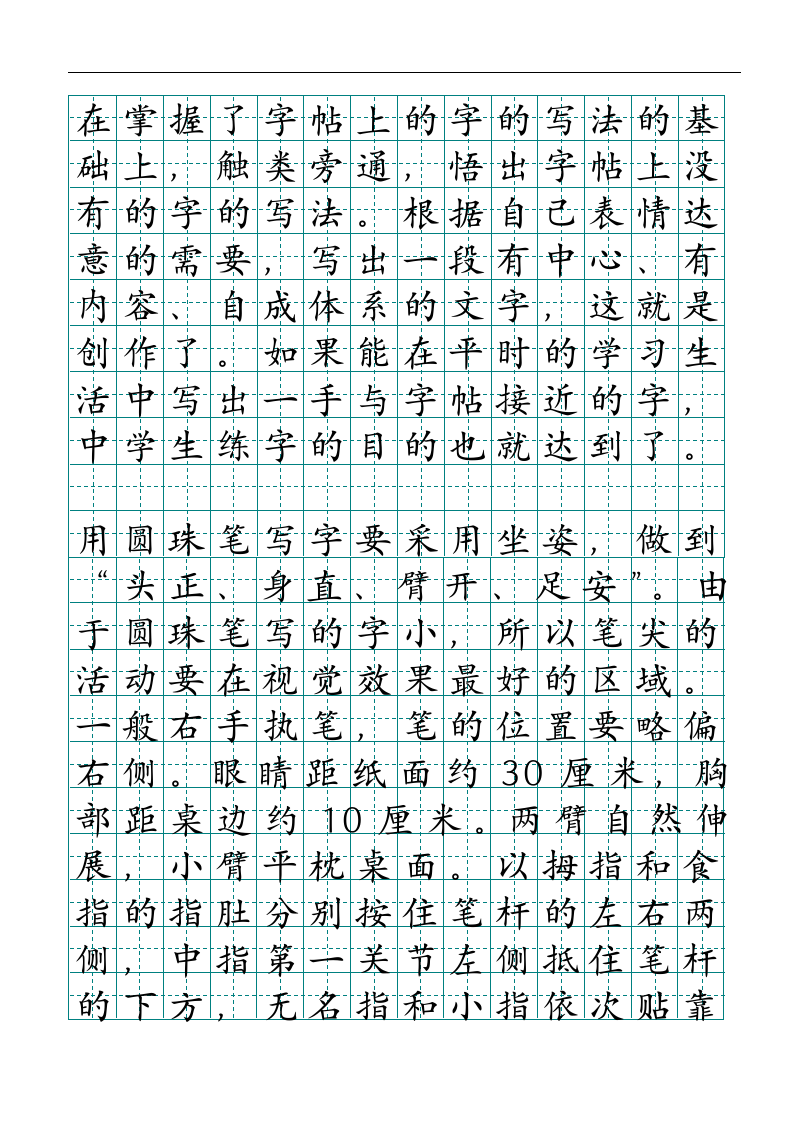 在掌握了字帖上的字的写法的基
础上，触类旁通，悟出字帖上没
有的字的写法。根据自己表情达
意的需要，写出一段有中心、有
内容、自成体系的文字，这就是
创作了。如果能在平时的学习生
活中写出一手与字帖接近的字，
中学生练字的目的也就达到了。
用圆珠笔写字要采用坐姿，做到
“头正、身直、臂开、足安”。由
于圆珠笔写的字小，所以笔尖的
活动要在视觉效果最好的区域。
一般右手执笔，笔的位置要略偏
右侧。眼睛距纸面约30厘米，胸
部距桌边约10厘米。两臂自然伸
展，小臂平枕桌面。以拇指和食
指的指肚分别按住笔杆的左右两
侧，中指第一关节左侧抵住笔杆
的下方，无名指和小指依次贴靠